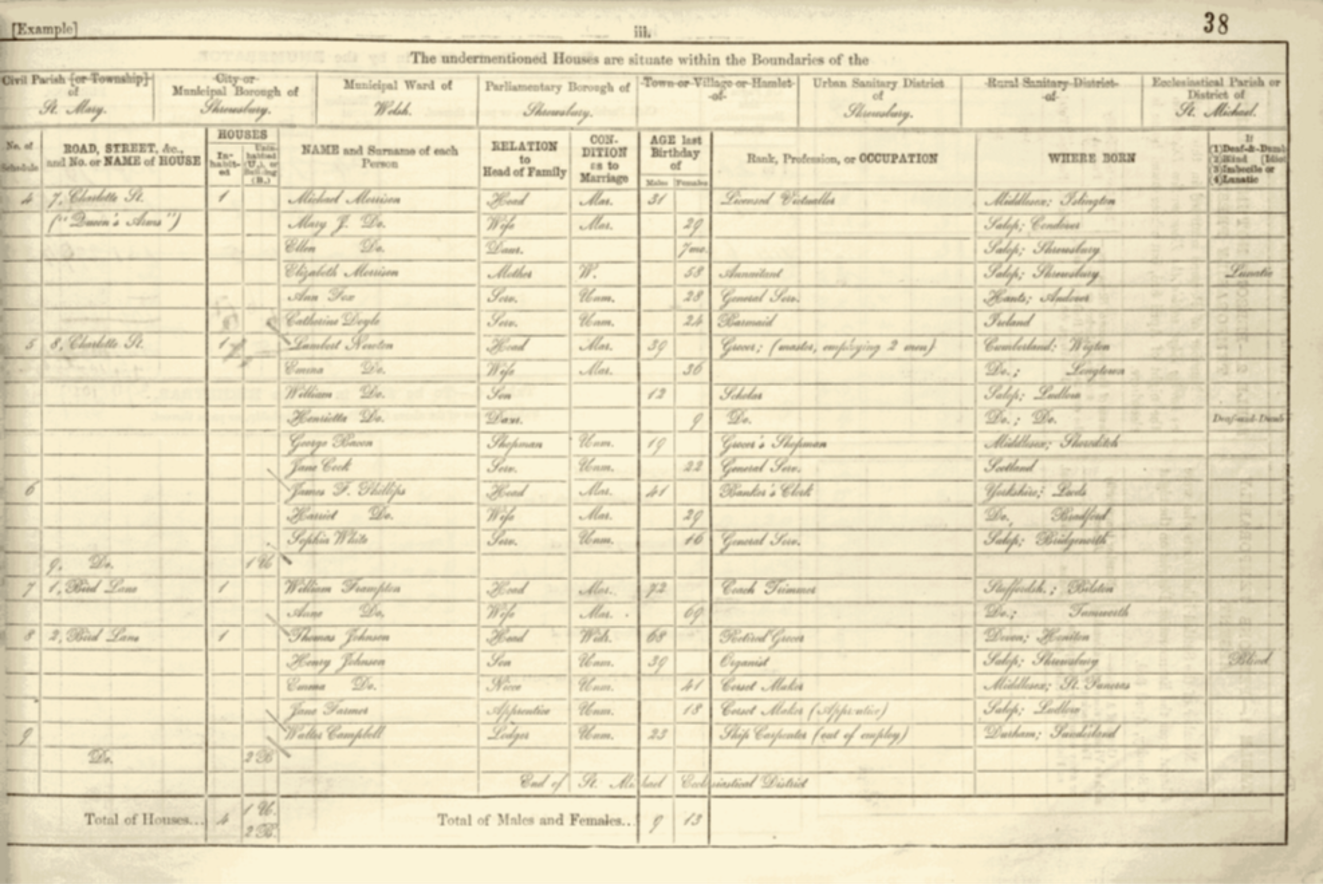 [Example] iii. 38
The undermentioned Houses are situate within the Boundaries of the
Civil Parish [or Township] of St. Mary. City or Municipal Borough of Shrewsbury. Municipal Ward of Welsh. Parliamentary Borough of Shrewsbury. Town or Village or Hamlet of Urban Sanitary District of Shrewsbury. Rural Sanitary District of Ecclesiastical Parish or District of St. Michael.
No. of Schedule ROAD, STREET, &c., and No. or NAME of HOUSE HOUSES Inhabited Uninhabited (U.), or Building (B.) NAME and Surname of each Person RELATION to Head of Family CONDITION as to Marriage AGE last Birthday of Males Females Rank, Profession, or OCCUPATION WHERE BORN If (1) Deaf-&-Dumb (2) Blind (3) Imbecile or Idiot (4) Lunatic
4 7, Charlotte St. 1 Michael Morrison Head Mar. 31 Licensed Victualler Middlesex; Islington
("Queen's Arms") Mary J. Do. Wife Mar. 29 Salop; Condover
Ellen Do. Daur. 7mo. Salop; Shrewsbury
Elizabeth Morrison Mother W. 58 Annuitant Salop; Shrewsbury Lunatic
Ann Fox Serv. Unm. 28 General Serv. Hants; Andover
Catherine Doyle Serv. Unm. 24 Barmaid Ireland
5 8, Charlotte St. 1 Lambert Newton Head Mar. 39 Grocer; (master, employing 2 men) Cumberland; Wigton
Emma Do. Wife Mar. 36 Do.; Longtown
William Do. Son 12 Scholar Salop; Ludlow
Henrietta Do. Daur. 9 Do. Do.; Do. Deaf-and-Dumb
George Bacon Shopman Unm. 19 Grocer's Shopman Middlesex; Shoreditch
Jane Cook Serv. Unm. 22 General Serv. Scotland
6 James F. Phillips Head Mar. 41 Banker's Clerk Yorkshire; Leeds
Harriet Do. Wife Mar. 29 Do. Bradford
Sophia White Serv. Unm. 16 General Serv. Salop; Bridgenorth
9, Do. 1 U
7 1, Bird Lane 1 William Frampton Head Mar. 72 Coach Trimmer Staffordsh.; Bilston
Anne Do. Wife Mar. 69 Do.; Tamworth
8 2, Bird Lane 1 Thomas Johnson Head Widr. 68 Retired Grocer Devon; Honiton
Henry Johnson Son Unm. 39 Organist Salop; Shrewsbury Blind
Emma Do. Niece Unm. 41 Corset Maker Middlesex; St. Pancras
Jane Farmer Apprentice Unm. 18 Corset Maker (Apprentice) Salop; Ludlow
9 Walter Campbell Lodger Unm. 23 Ship Carpenter (out of employ) Durham; Sunderland
Do. 2 B
End of St. Michael Ecclesiastical District
Total of Houses... 4 1 U. 2 B. Total of Males and Females... 9 13